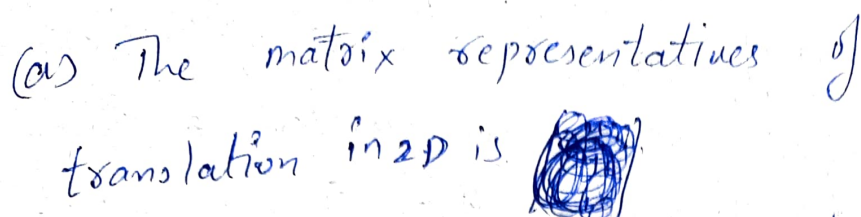 (a) The matrix representatives of
translation in 2D is